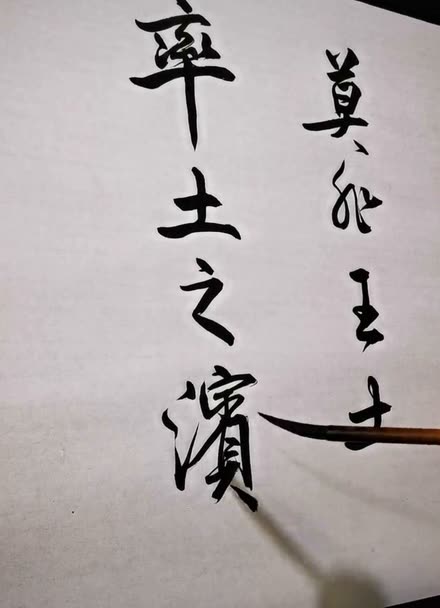 莫非王土
率土之濱